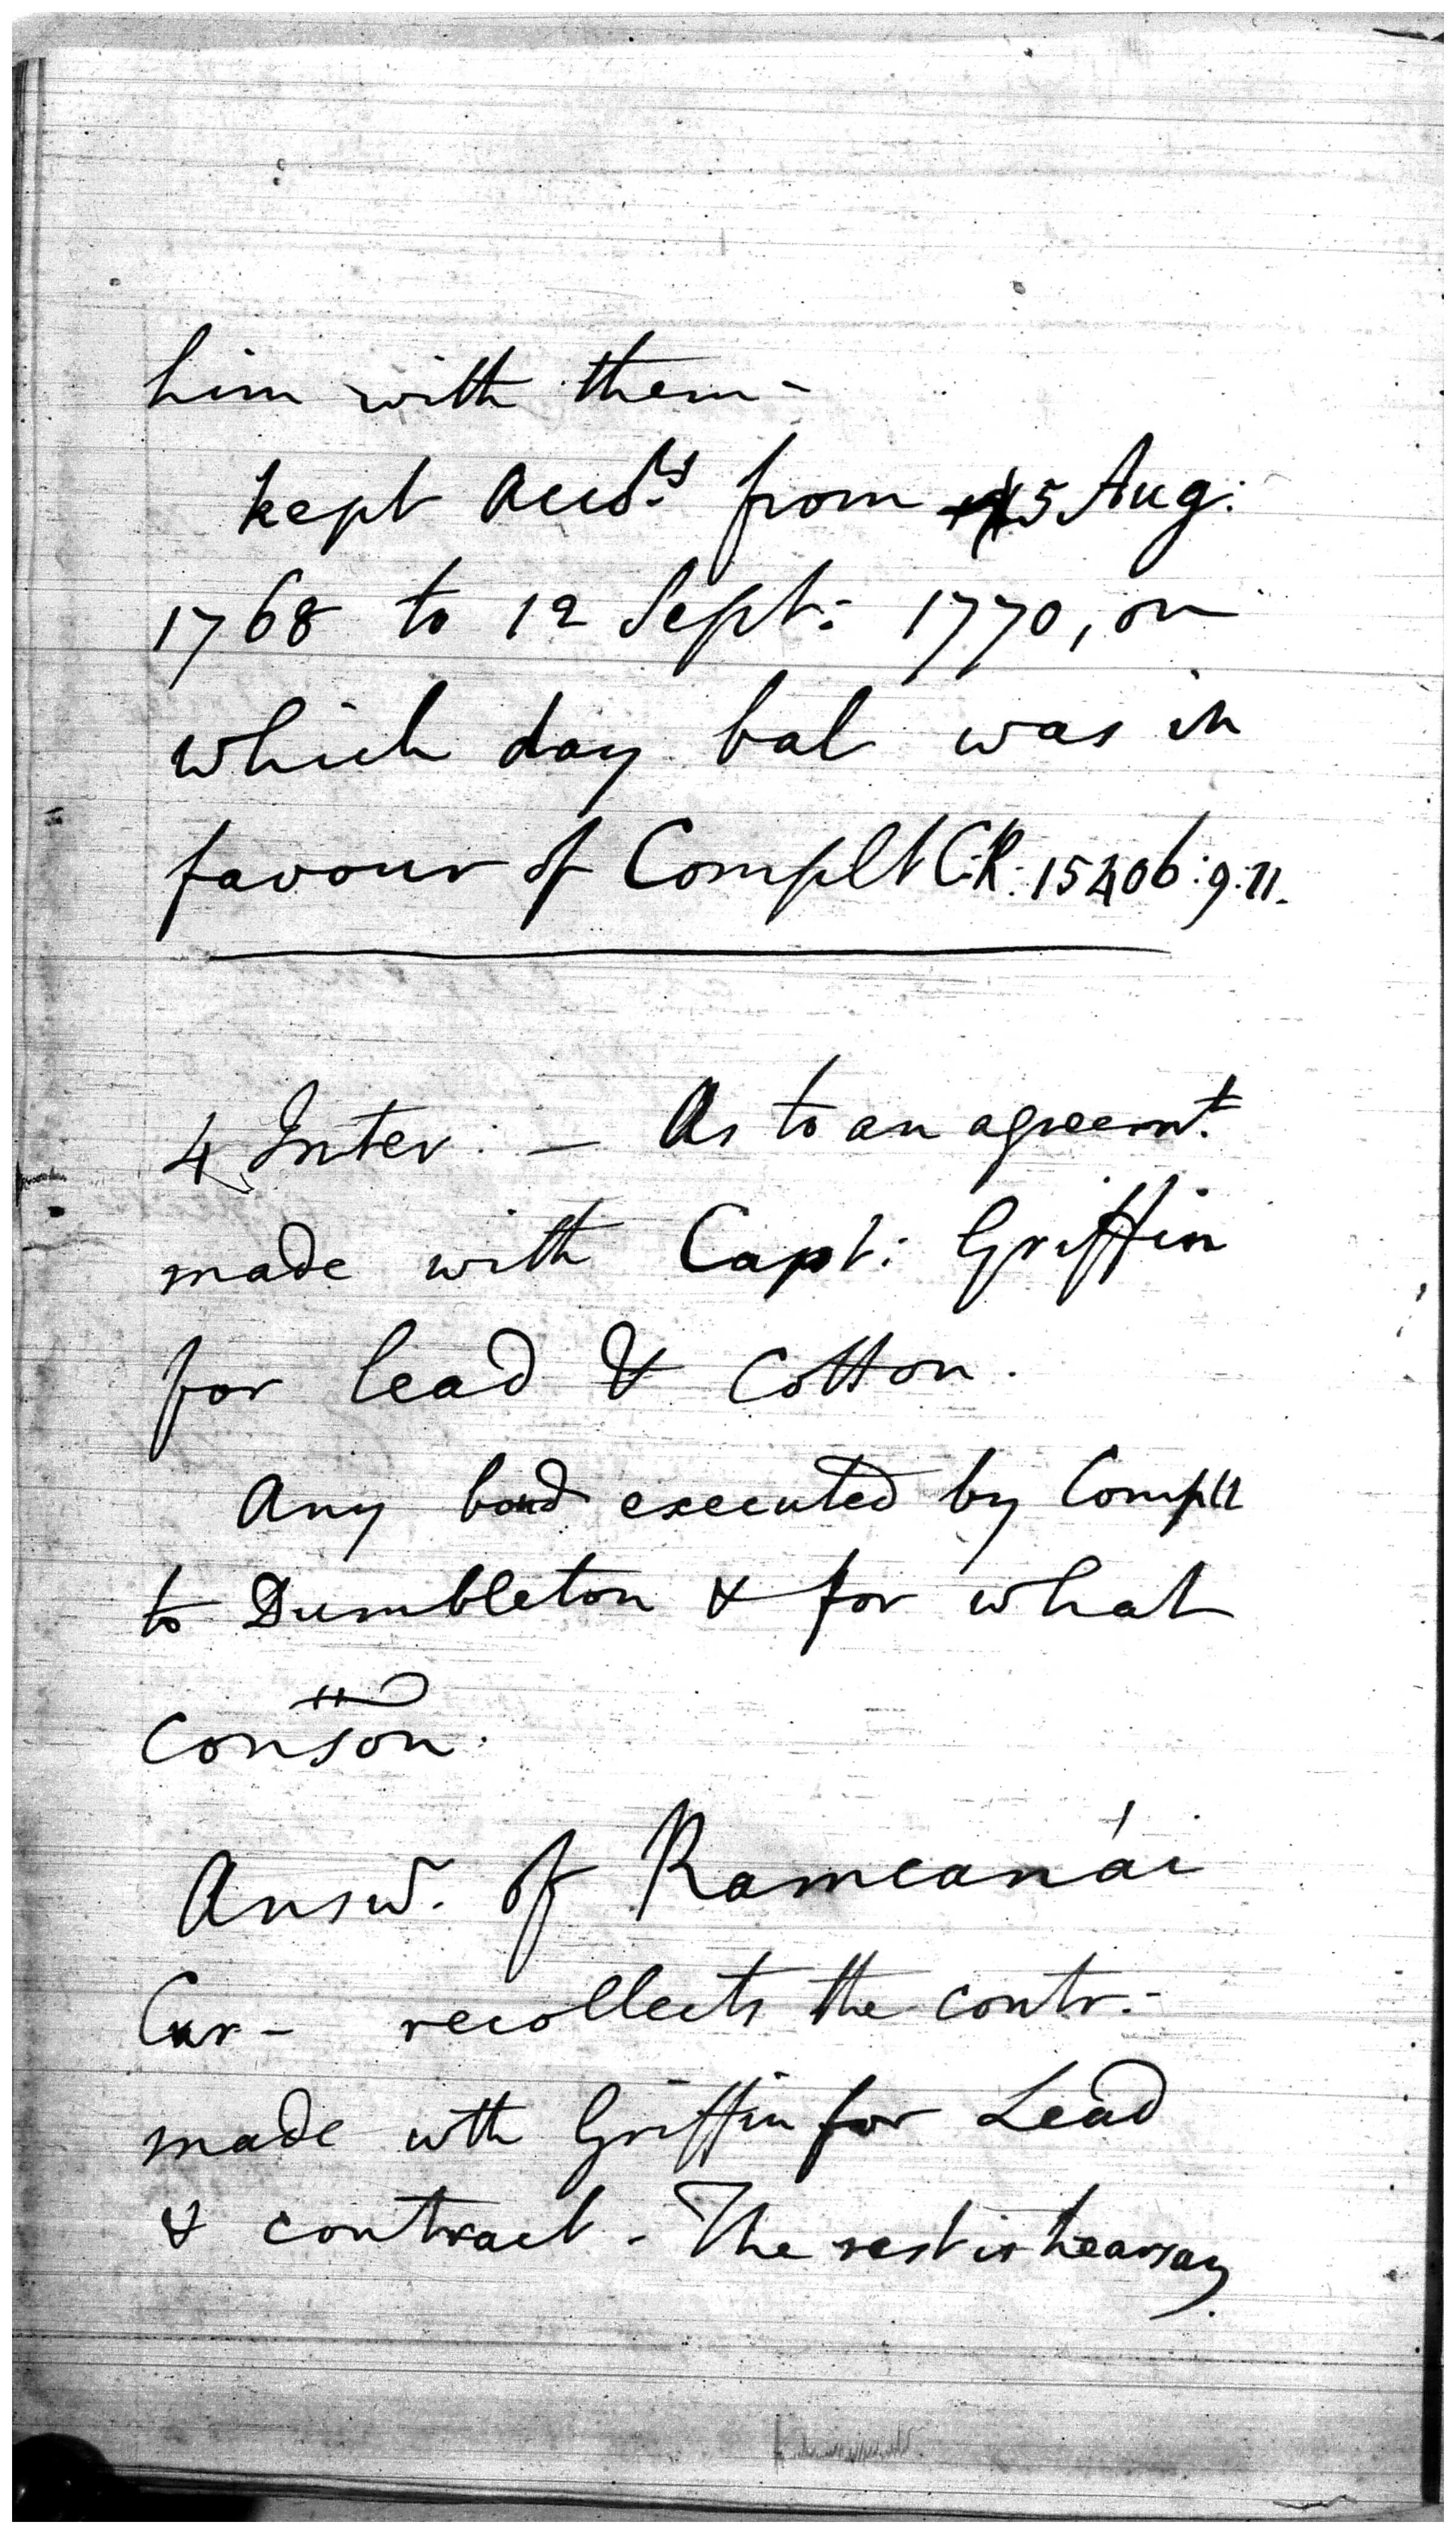 him with them -
kept Accts. from 15 Aug:
1768 to 12 Sept: 1770, on
which day bal was in
favour of Complt C:R: 15406:9.11.
4 Inter: - As to an agreemt.
made with Capt: Griffin
for lead & Cotton.
Any bond executed by Complt
to Dumbleton & for what
Conson.
Answ. of Ramcanái
Cur - recollects the contr.-
made wth Griffin for Lead
& contract - The rest is hearsay